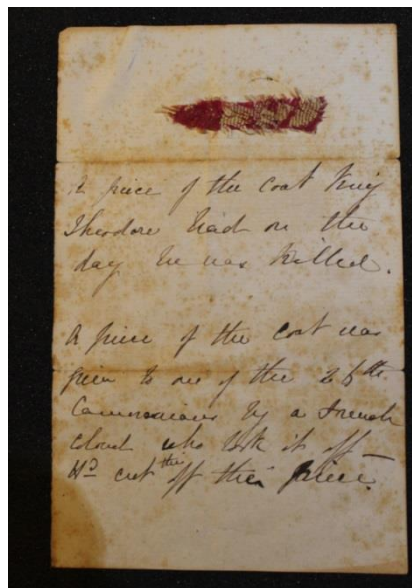 A piece of the coat King
Theodore had on the
day he was killed.
A piece of the coat was
given to one of the 26th
Cameronians by a French
colonel who took it off
cut this off their piece.